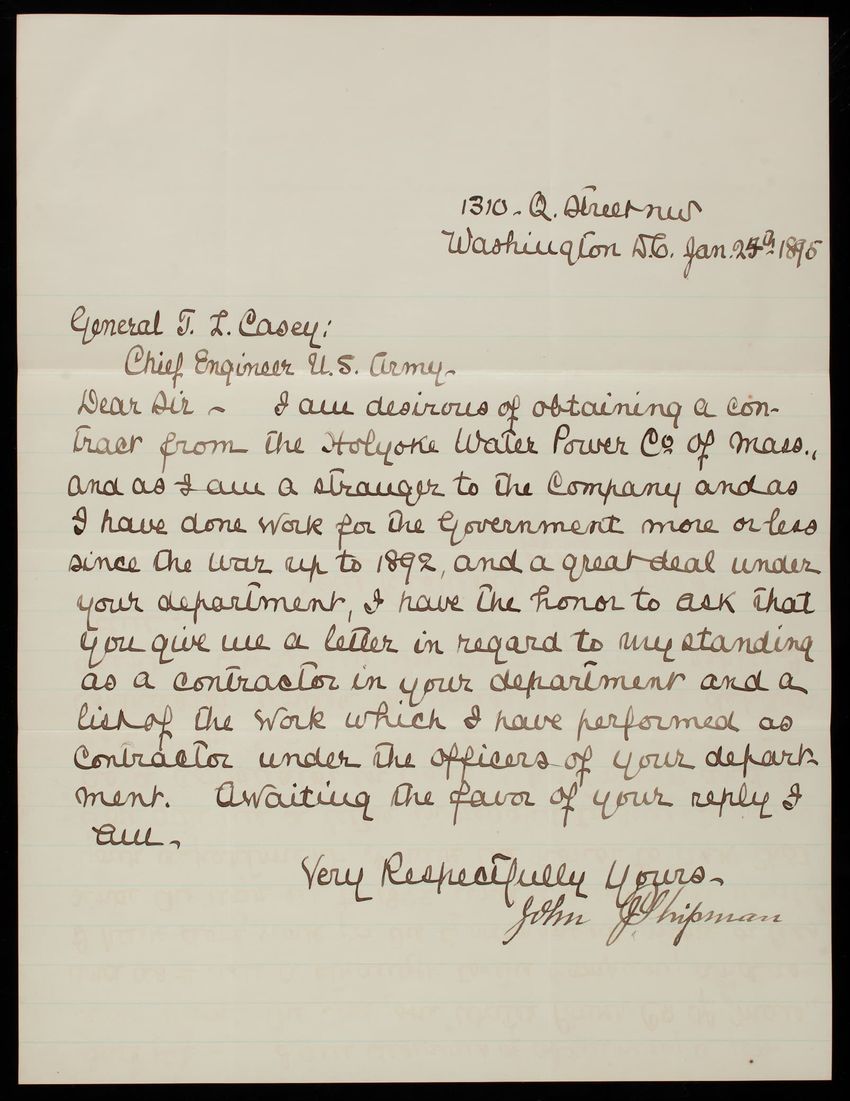 1310. Q. Street nw
Washington D.C. Jan. 25th 1895
General T. L. Casey;
Chief Engineer U.S. Army.
Dear Sir - I am desirous of obtaining a con-
tract from the Holyoke Water Power Co of Mass.,
and as I am a stranger to the Company and as
I have done work for the Government more or less
since the war up to 1892, and a great deal under
your department, I have the honor to ask that
you give me a letter in regard to my standing
as a contractor in your department and a
list of the work which I have performed as
contractor under the officers of your depart-
ment. Awaiting the favor of your reply I
am.
Very Respectfully Yours-
John J. Shipman